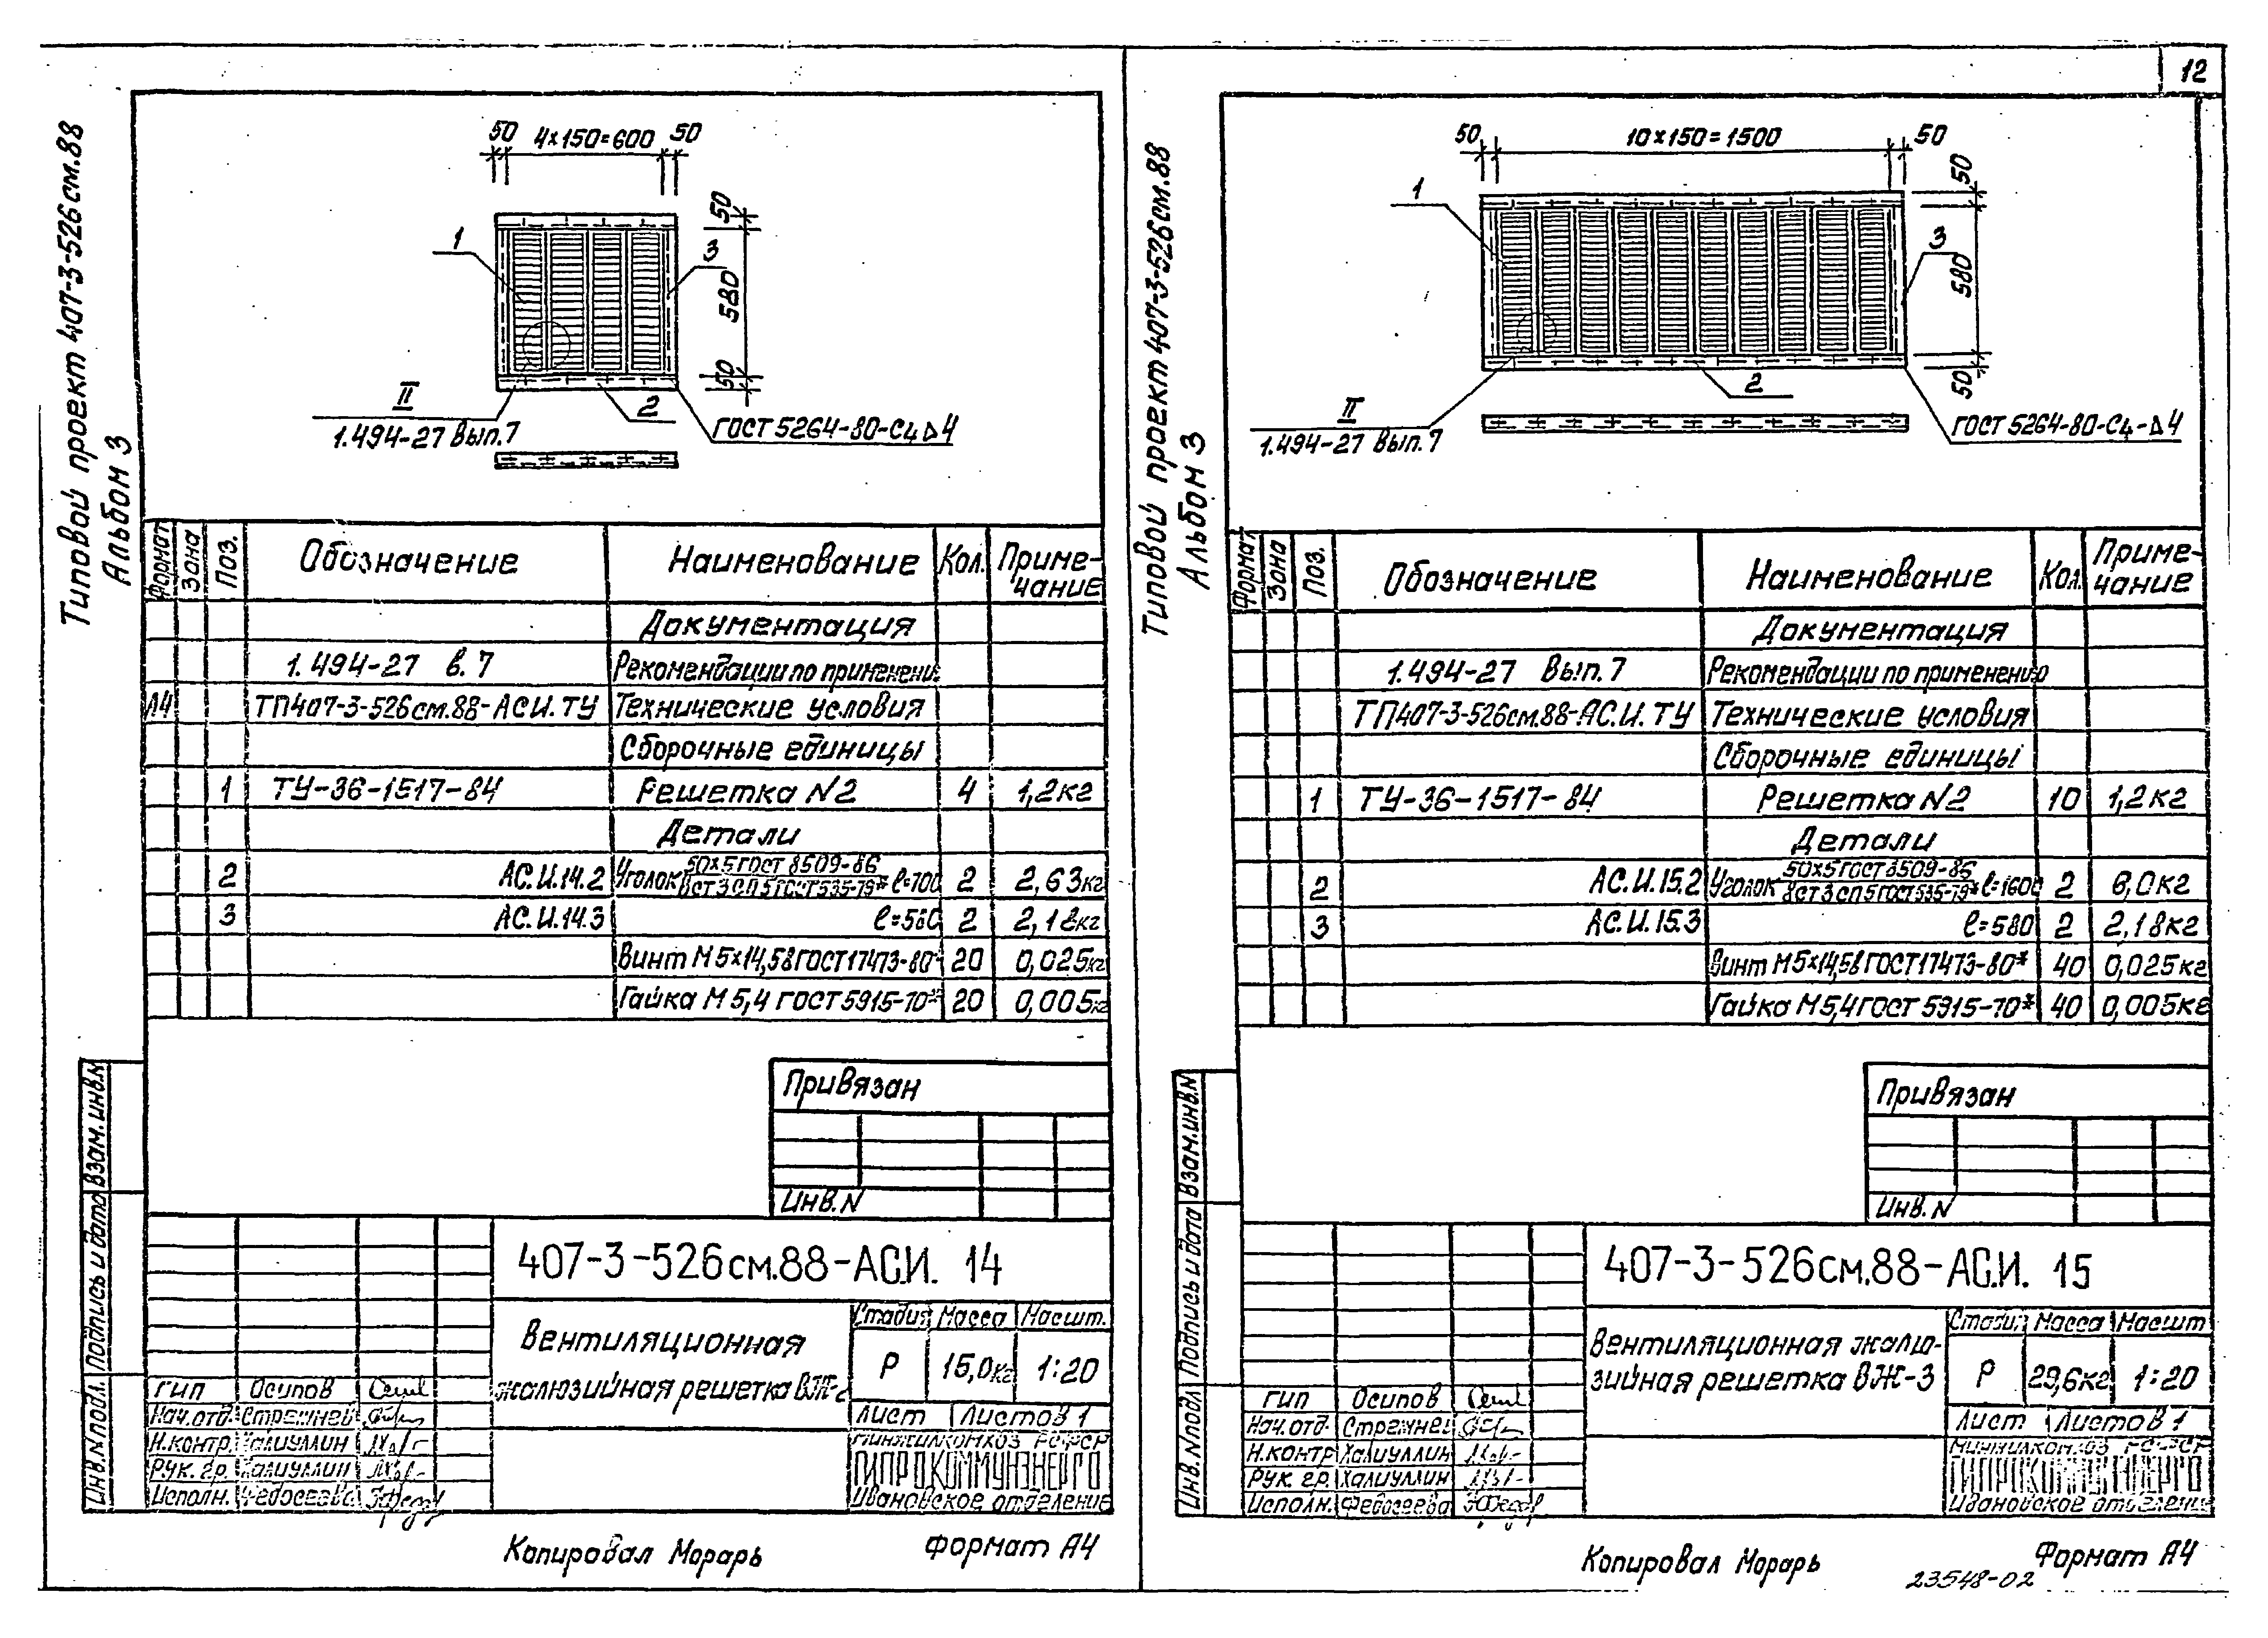 12
Типовой проект 407-3-526см.88
Альбом 3
50 4×150=600 50
50
580
50
1
3
2
II
1.494-27 Вып.7
ГОСТ 5264-80-С4 Δ4
Формат Зона Поз. Обозначение Наименование Кол. Приме-
чание
Документация
1.494-27 в.7 Рекомендации по применени
А4 ТП407-3-526см.88-АС.И.ТУ Технические условия
Сборочные единицы
1 ТУ-36-1517-84 Решетка N2 4 1,2кг
Детали
2 АС.И.14.2 Уголок 50×5 ГОСТ 8509-86 / ВСТ3СП5 ГОСТ 535-79* ℓ=700 2 2,63кг
3 АС.И.14.3 ℓ=580 2 2,18кг
Винт М5×14,58 ГОСТ17473-80* 20 0,025кг
Гайка М5,4 ГОСТ 5915-70* 20 0,005кг
Привязан
Инв.N
Взам.инв.N
Подпись и дата
Инв.N подл.
407-3-526см.88-АС.И. 14
Вентиляционная
жалюзийная решетка ВЖ-2
Стадия Масса Масшт.
Р 15,0кг 1:20
Лист Листов 1
Минжилкомхоз РСФСР
ГИПРОКОММУНЭНЕРГО
Ивановское отделение
ГИП Осипов
Нач.отд. Стрежнев
Н.контр. Халиуллин
Рук. гр. Халиуллин
Исполн. Федосеева
Копировал Морарь Формат А4
Типовой проект 407-3-526см.88
Альбом 3
50 10×150=1500 50
50
580
50
1
3
2
II
1.494-27 Вып.7
ГОСТ 5264-80-С4-Δ4
Формат Зона Поз. Обозначение Наименование Кол. Приме-
чание
Документация
1.494-27 Вып.7 Рекомендации по применению
ТП407-3-526см.88-АС.И.ТУ Технические условия
Сборочные единицы
1 ТУ-36-1517-84 Решетка N2 10 1,2кг
Детали
2 АС.И.15.2 Уголок 50×5 ГОСТ 8509-86 / ВСТ3СП5 ГОСТ 535-79* ℓ=1600 2 6,0кг
3 АС.И.15.3 ℓ=580 2 2,18кг
Винт М5×14,58 ГОСТ17473-80* 40 0,025кг
Гайка М5,4 ГОСТ 5915-70* 40 0,005кг
Привязан
Инв.N
Взам.инв.N
Подпись и дата
Инв.N подл.
407-3-526см.88-АС.И. 15
Вентиляционная жалю-
зийная решетка ВЖ-3
Стадия Масса Масшт
Р 29,6кг 1:20
Лист Листов 1
Минжилкомхоз РСФСР
ГИПРОКОММУНЭНЕРГО
Ивановское отделение
ГИП Осипов
Нач.отд. Стрежнев
Н.контр Халиуллин
Рук. гр. Халиуллин
Исполн. Федосеева
Копировал Морарь Формат А4
23548-02